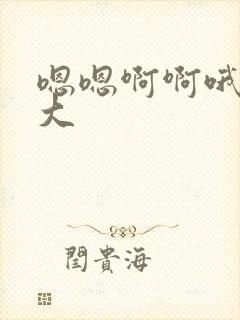 嗯嗯啊啊哦
大
閏貴海